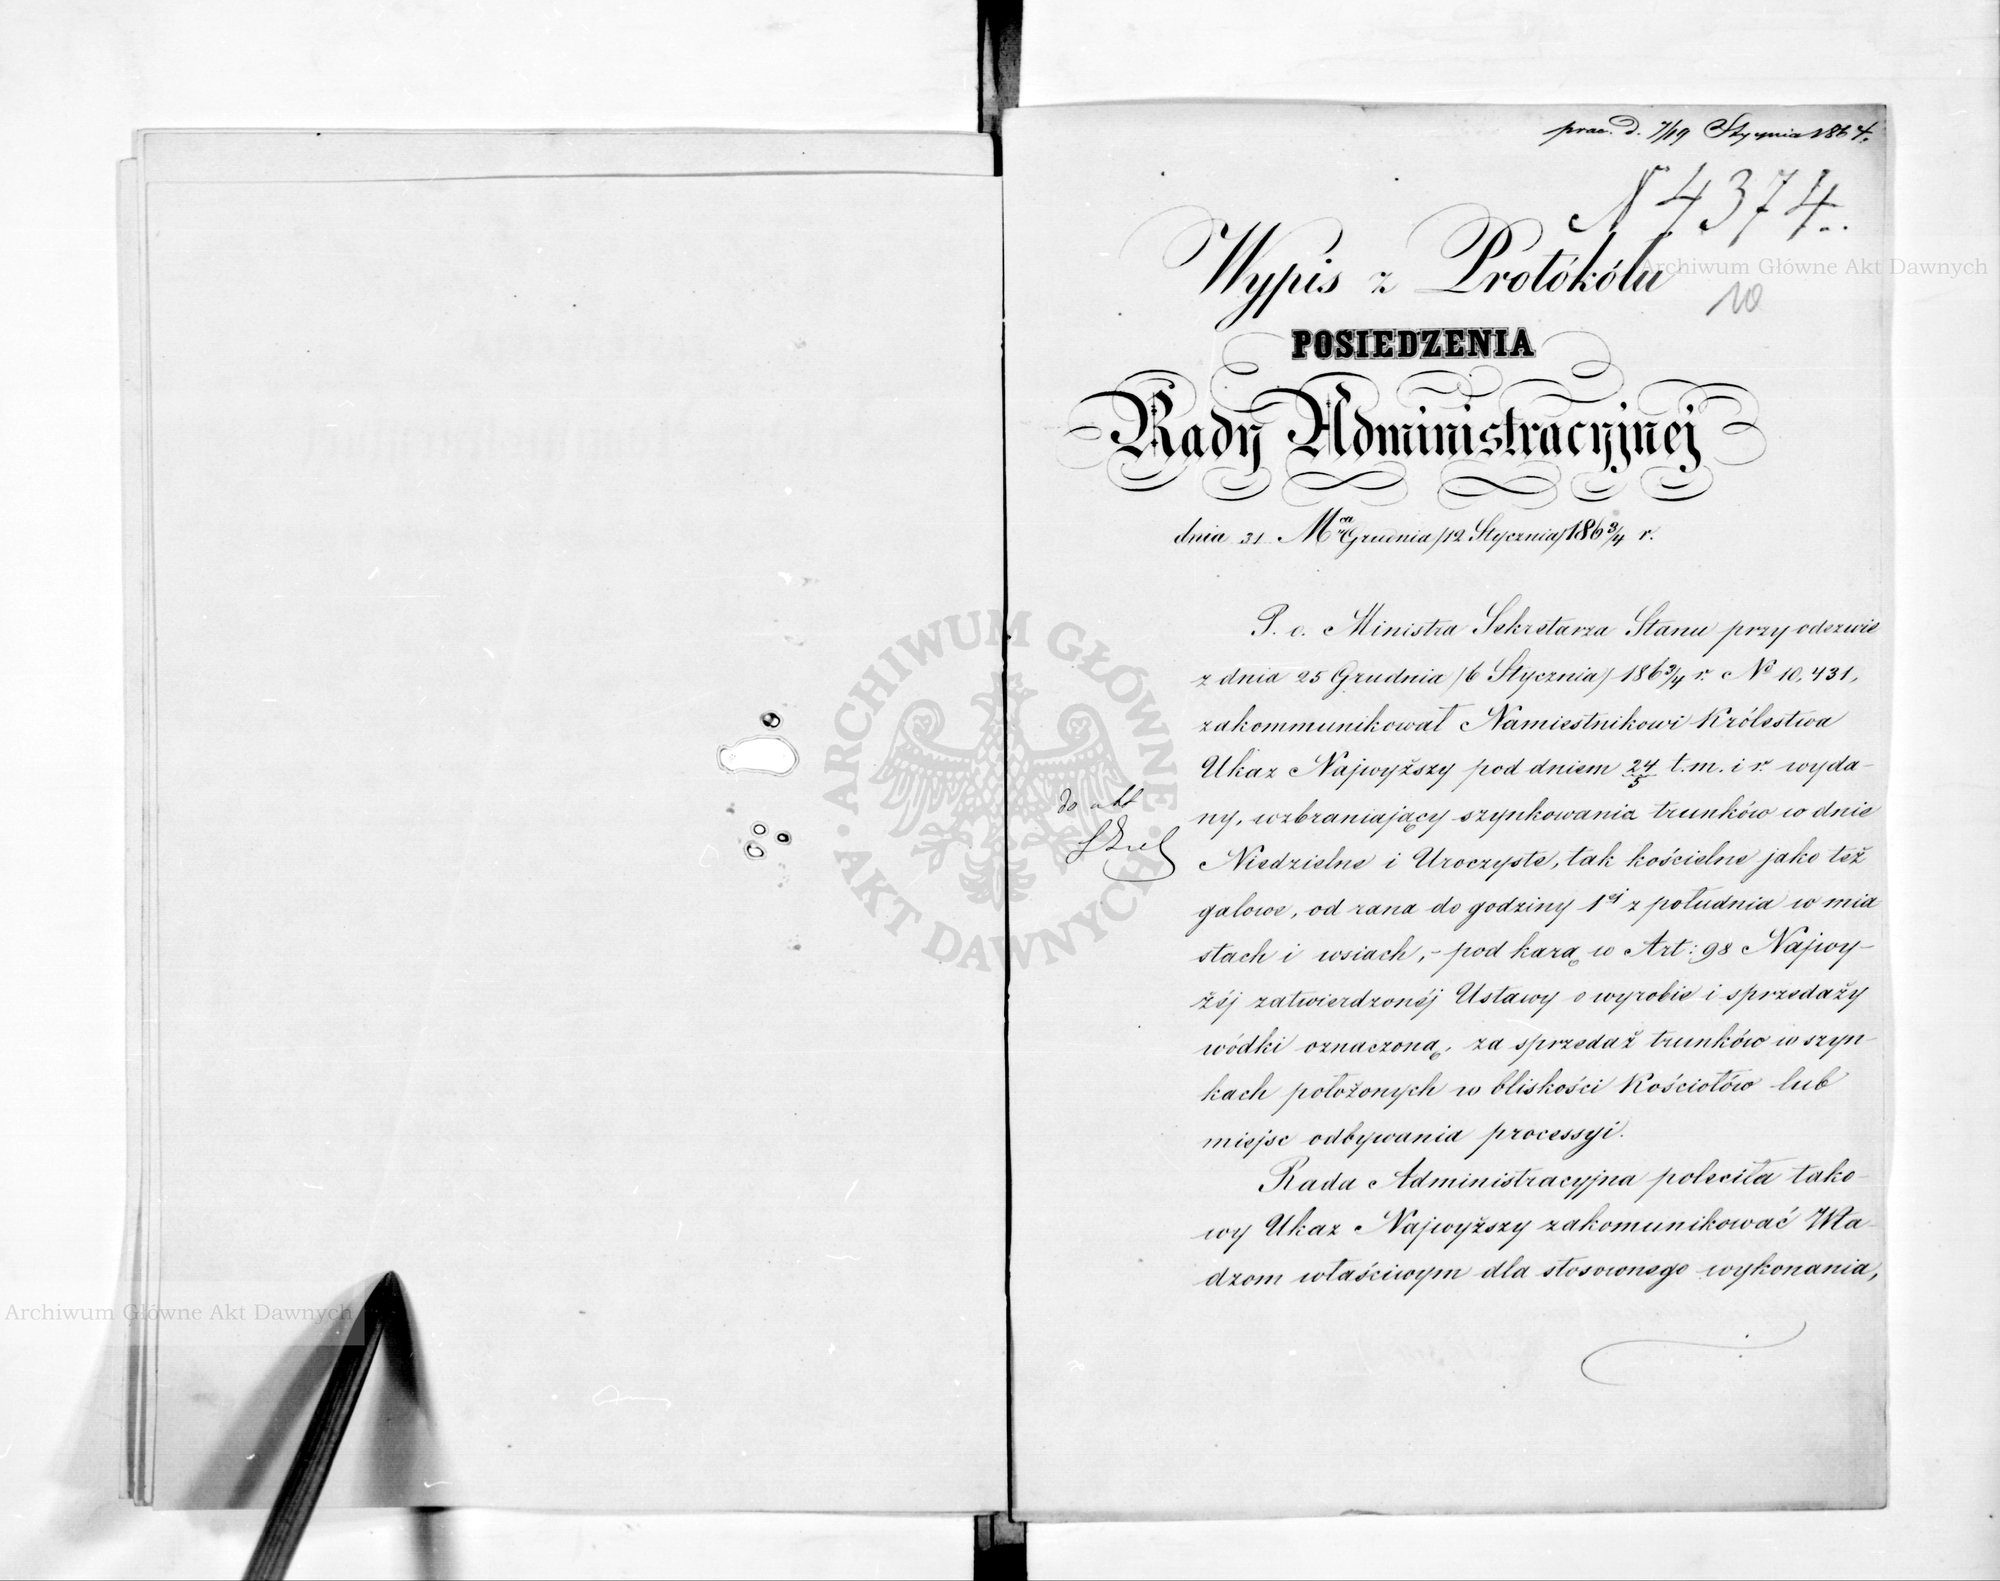 prae. d. 7/19 Stycznia 1864.
N 4374.
Wypis z Protokółu
10
POSIEDZENIA
Rady Administracyjnej
dnia 31 Mca Grudnia /12 Stycznia/ 1863/4 r.
P. o. Ministra Sekretarza Stanu przy odezwie
z dnia 25 Grudnia /6 Stycznia/ 1863/4 r. No 10,431,
zakommunikował Namiestnikowi Królestwa
Ukaz Najwyższy pod dniem 24/5 t.m. i r. wyda-
ny, wzbraniający szynkowania trunków w dnie
do akt
Niedzielne i Uroczyste, tak kościelne jako też
galowe, od rana do godziny 1ej z południa w mia
stach i wsiach, - pod karą w Art: 98 Najwy-
żéj zatwierdzonéj Ustawy o wyrobie i sprzedaży
wódki oznaczoną, za sprzedaż trunków w szyn-
kach położonych w bliskości Kościołów lub
miejsc odbywania processyi.
Rada Administracyjna poleciła tako-
wy Ukaz Najwyższy zakomunikować Wła-
dzom właściwym dla stosownego wykonania,
Archiwum Główne Akt Dawnych
Archiwum Główne Akt Dawnych
ARCHIWUM GŁÓWNE · AKT DAWNYCH ·